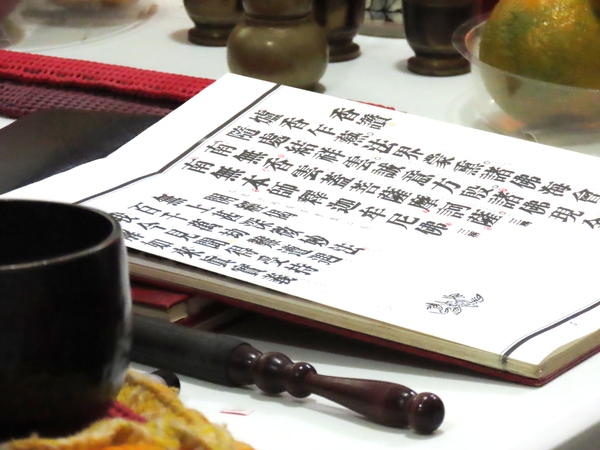 香讚
爐香乍爇法界蒙熏諸佛海會
隨處結祥雲誠意方殷諸佛現全
南無香雲蓋菩薩摩訶薩 三稱
南無本師釋迦牟尼佛 三稱
開經偈
無上甚深微妙法
百千萬劫難遭遇
我今見聞得受持
解如來真實義